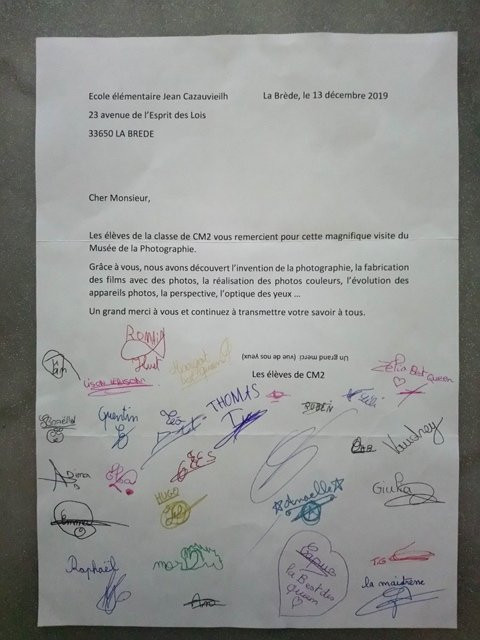 Ecole élémentaire Jean Cazauvieilh La Brède, le 13 décembre 2019
23 avenue de l'Esprit des Lois
33650 LA BREDE
Cher Monsieur,
Les élèves de la classe de CM2 vous remercient pour cette magnifique visite du
Musée de la Photographie.
Grâce à vous, nous avons découvert l'invention de la photographie, la fabrication
des films avec des photos, la réalisation des photos couleurs, l'évolution des
appareils photos, la perspective, l'optique des yeux ...
Un grand merci à vous et continuez à transmettre votre savoir à tous.
Un grand merci (vue de nos yeux)
Les élèves de CM2
Romain
Best Queen
THOMAS
RUBEN
Quentin
Léo
Vaudrey
HUGO
Anaëlle
Giulia
Raphaël
la Best des
Queen
la maîtresse